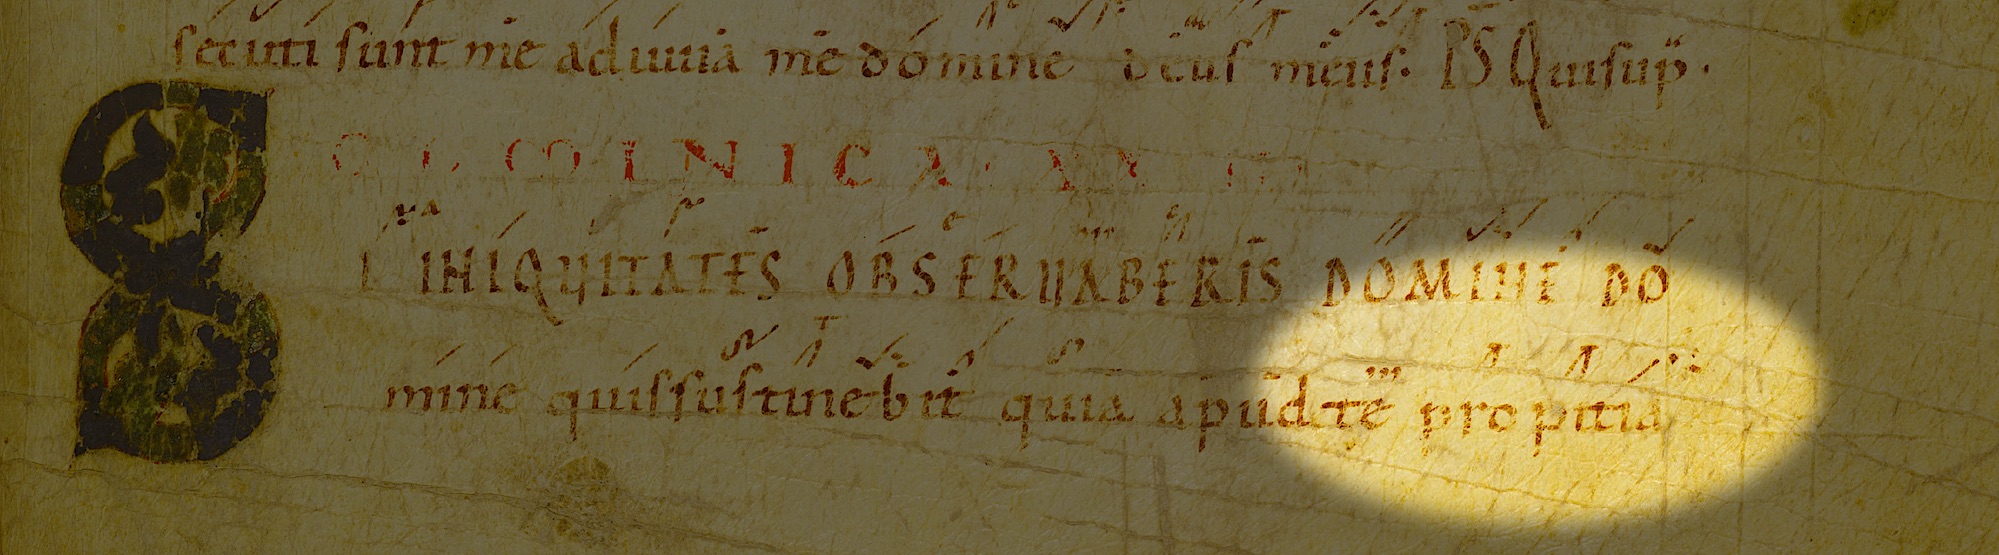 secuti sunt me adiuua me domine deus meus. PS Qui sup.
DOMINICA. XX
SI INIQUITATES OBSERUABERIS DOMINE DO
mine quis sustinebit quia apud te propitia